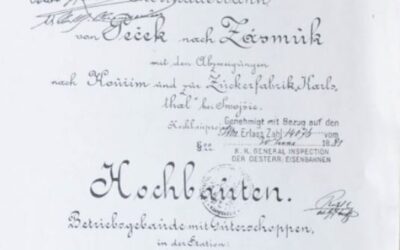 von Peček nach Zásmuk
mit den Abzweigungen
nach Kouřim und zur Zuckerfabrik Karls
thal bei Swojsic.
Hochbauproject
Genehmigt mit Bezug auf den
Erlass Zahl 14076 vom
§22.
K. K. GENERAL INSPECTION
DER OESTERR. EISENBAHNEN
Hochbauten.
Betriebsgebäude mit Güterschoppen,
in der Station: